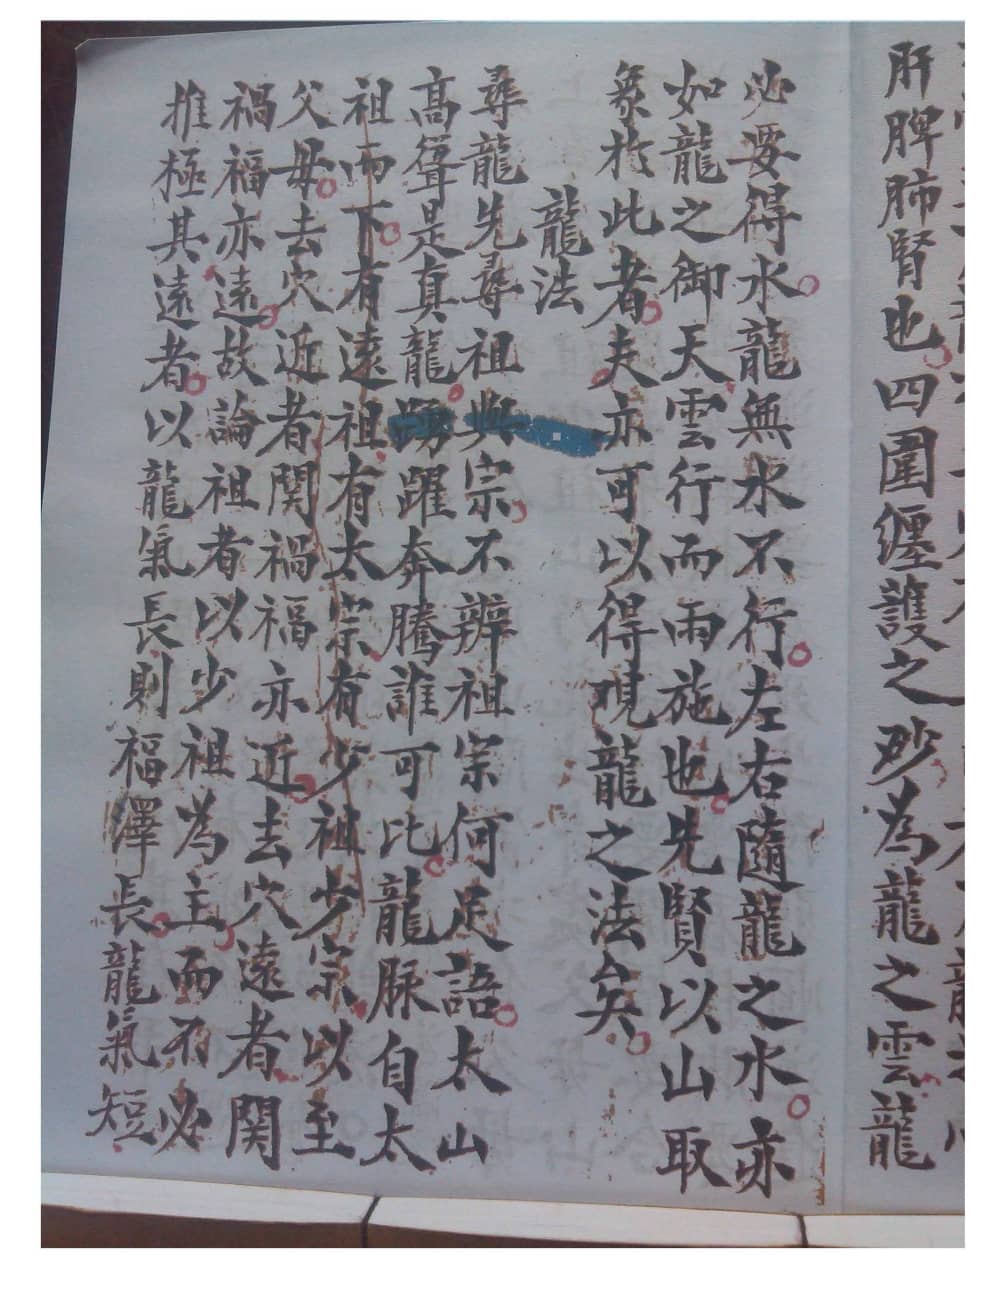 肝脾肺腎也四圍纏護之妙為龍之雲龍
必要得水龍無水不行左右隨龍之水亦
如龍之御天雲行而雨施也先賢以山取
象於此者夫亦可以得覌龍之法矣
龍法
尋龍先尋祖與宗不辨祖宗何足語太山
高聳是真龍踴躍奔騰誰可比龍脉自太
祖而下有遠祖有太宗有少祖少宗以至
父母去穴近者関禍福亦近去穴遠者関
禍福亦遠故論祖者以少祖為主而不必
推極其遠者以龍氣長則福澤長龍氣短